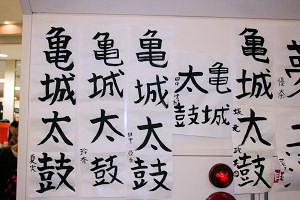 亀城太鼓
亀城
太鼓
亀城太鼓
亀城太鼓
玲奈
亀城太鼓
夏実